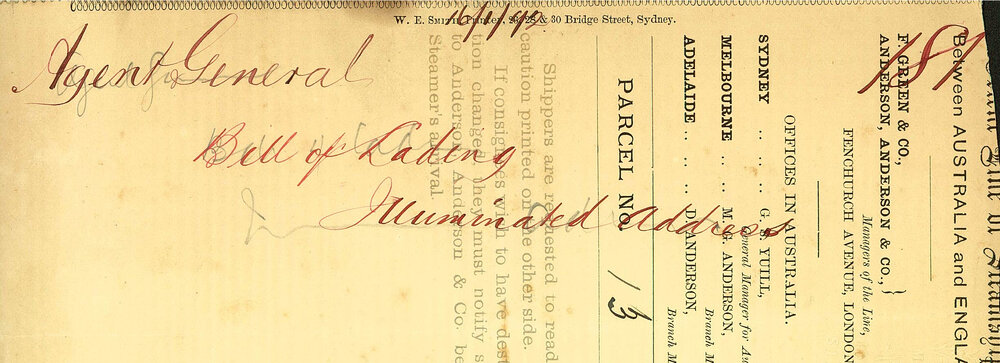 W. E. Smith, Printer, 26, 28 & 30 Bridge Street, Sydney.
Agent General
Bill of Lading
Illuminated Address
187
Between AUSTRALIA and ENGLA
F. GREEN & CO.,
ANDERSON, ANDERSON & CO., }
Managers of the Line,
FENCHURCH AVENUE, LONDON
OFFICES IN AUSTRALIA.
SYDNEY .. .. G. S. YUILL,
General Manager for Au
MELBOURNE .. M. G. ANDERSON,
Branch M
ADELAIDE .. .. D. ANDERSON,
Branch M
PARCEL No 13
Shippers are requested to read
caution printed on the other side.
If consignees wish to have dest
tion changed, they must notify s
to Anderson, Anderson & Co. be
Steamer's arrival.